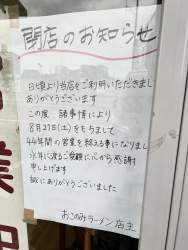 閉店のお知らせ
日頃より当店をご利用いただきまし
ありがとうございます
この度 諸事情により
8月27日(土)をもちまして
44年間の営業を終える事になりました
永年に渡るご愛顧に心から感謝
申し上げます
誠にありがとうございました
おこのみラーメン店主